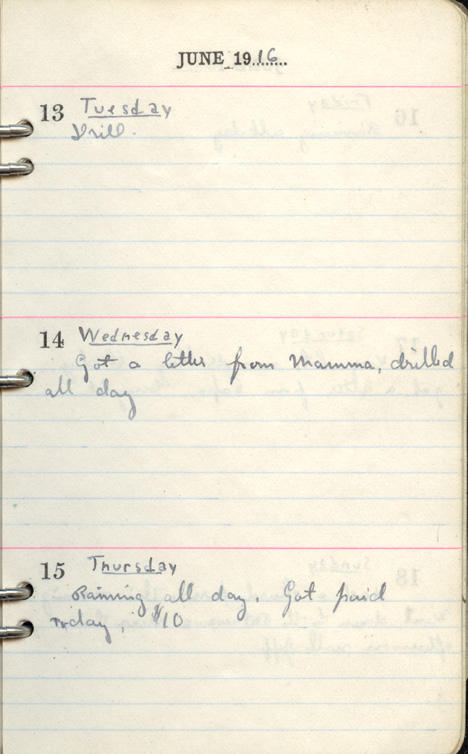 JUNE 1916
13 Tuesday
Drill.
14 Wednesday
Got a letter from Mamma, drilled
all day
15 Thursday
Raining all day. Got paid
today, $10